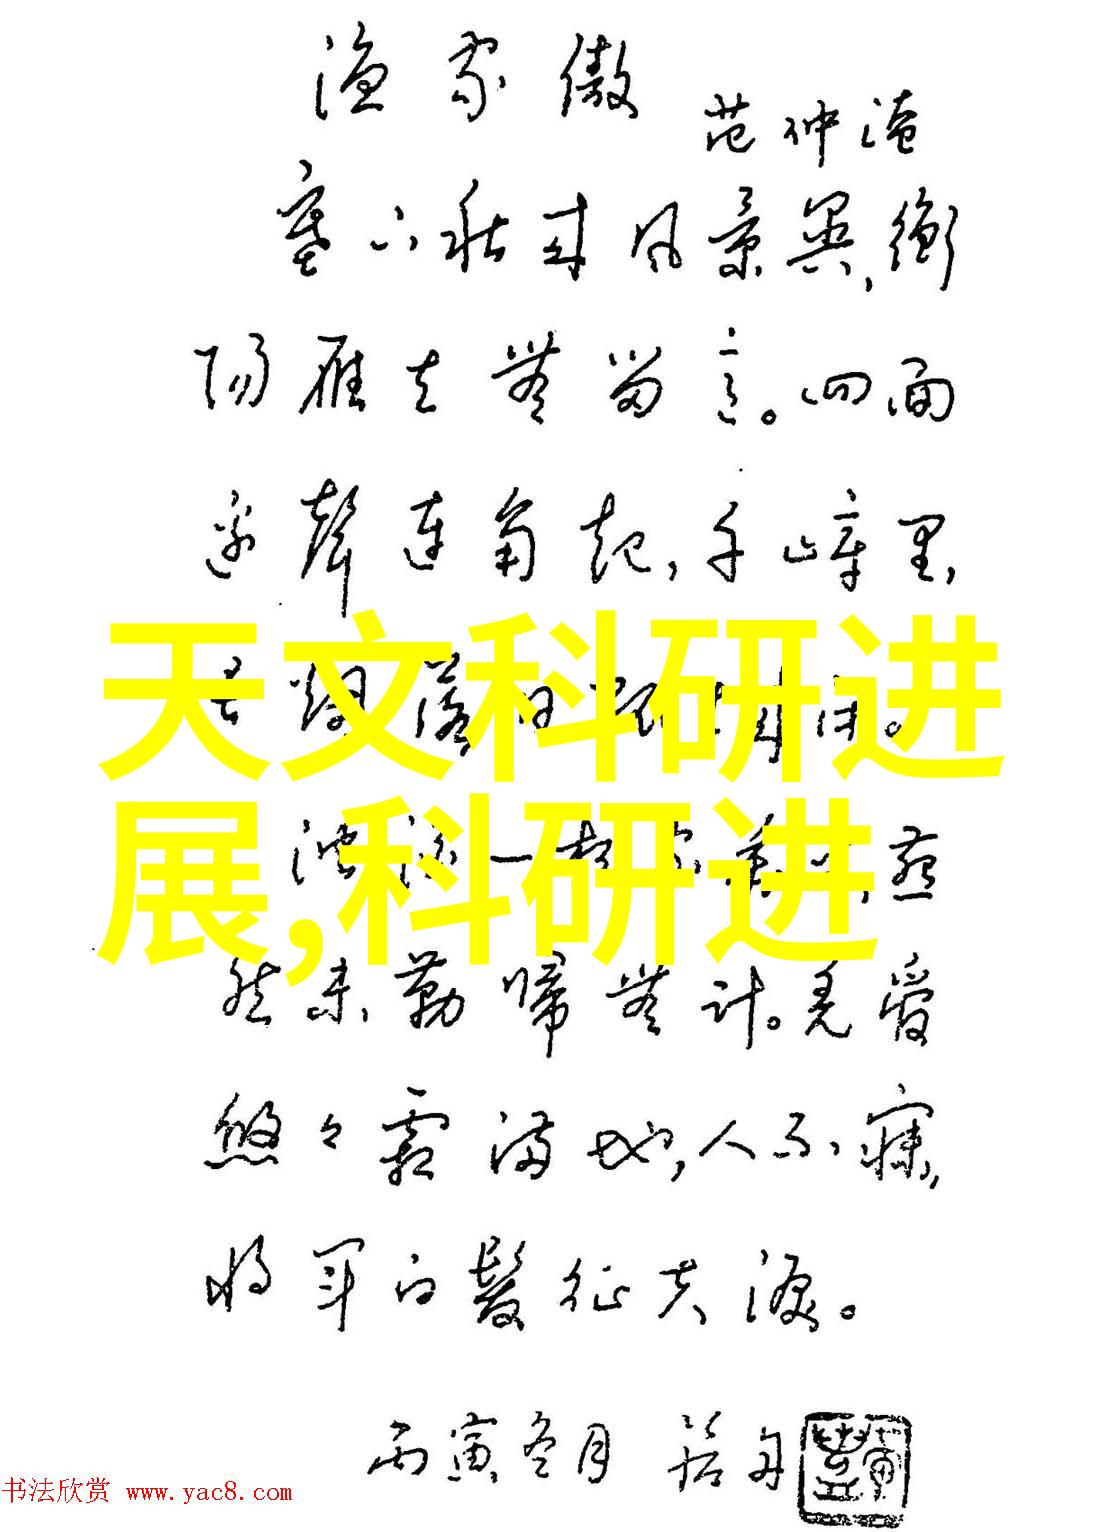 渔家傲
范仲淹
塞下秋来风景异,衡
阳雁去無留意。四面
边聲连角起,千嶂里,
長煙落日孤城闭。
天文科研进
展,科研进
浊酒一杯家萬里,燕
然未勒歸無计。羌管
悠々霜满地,人不寐,
将军白髮征夫淚。
丙寅冬月
书法欣赏 www.yac8.com